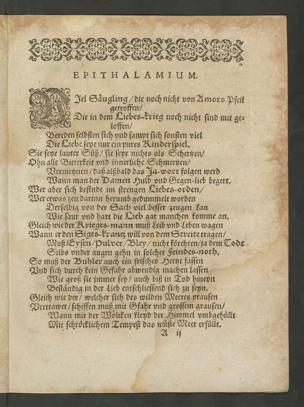 EPITHALAMIUM.
VIel Säugling / die noch nicht von Amors Pfeil
getroffen /
Die in dem Liebes-krieg noch nicht sind mit ge-
loffen /
Bereden selbsten sich und sampt sich sonsten viel
Die Liebe seye nur ein pures Kinderspiel,
Sie seye lauter Süß / sie seye nichts als Schertzen /
Ohn alle Bitterkeit und innerliche Schmertzen /
Vermeynen / daß alßbald das Ja-wort folgen werd
Wann man der Damen Huld und Gegen-lieb begert.
Wer aber sich befindt im strengen Liebes-orden /
Wer etwas zeit darinn herumb gedummelt worden
Derselbig von der Sach viel besser zeugen kan
Wie saur und hart die Lieb gar manchen komme an.
Gleich wie der Krieges-mann muß Leib und Leben wagen
Wann er den Siges-krantz will von dem Streite tragen /
Muß Eysen / Pulver / Bley / nicht förchten / ja dem Todt
Selbs under augen gehn in solcher Feindes-noth,
So muß der Buhler auch ein frisches Hertze fassen
Und sich durch kein Gefahr abwendig machen lassen
Wie groß sie immer sey / auch biß in Tod hineyn
Beständig in der Lieb entschliessend sich zu seyn.
Gleich wie der / welcher sich des wilden Meers prausen
Vertrawet / schiffen muß mit Gfahr und grossem grausen /
Wann mit der Wolcken kleyd der Himmel umbgehüllt
Mit schröcklichem Tempest das wüste Meer erfüllt.
A ij